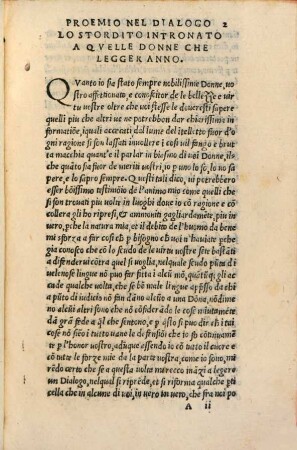 PROEMIO NEL DIALOGO 2
LO STORDITO INTRONATO
A QVELLE DONNE CHE
LEGGER ANNO.
QVanto io sia stato sempre nobilissime Donne, uo
stro affettionato, e compositor de le bellezze e uir
tu uostre oltre che uoi stesse le deuereste sapere
quelli piu che altri ue ne potrebbon dar chiarissima in
formatiōe, iquali accecati dal lume del ītelletto fuor d'o
gni ragione si son lassati inuolgere ī cosi uil fango e bru
ta macchia quant'e il parlar in biasmo di uoi Donne, ilche
quāto sia fuor d'amor di uerūi uostri, io p me nō lo so sapre
pe, e lo sapro sempre. Questi tali dico, ui potrebbero
esser bōissimo testimonio de l'animo mio come quelli che
si son trouati piu uolte in luoghi doue io cō ragione e cō
collera gli ho ripresi, & ammoniti gagliardamēte, piu in
uero, pche la natura mia, et il debito de l'huomo da bene
mi sforza a far cosi che p bisogno ch uoi n'hauiate pch
ga conosco che cō lo scudo de le uirtu uostre sete bastāti
a difenderui cōtra quel si uoglia, nelquale scudo pūta di
uelenose lingue nō puo far īsulto alcū mō, quātūq; gli ac
cade qualche uolta, che se bō male lingue appsso da chi
a pūto di iudicio nō fin dāno alcūo a una Dōne, nōdime
no alcūi altri sono che nō cōsiderādo le cose minutamēte
da grā fede a ql che sentono, e p aslo si puo dir ch'i tut
ti cosi nō sēza i tutto uane le difensiōi che io so continuamē
te p l'honor uostro, adūque essendo io cō tutto il cuore e
e cō tutte le forze mie da la parte uostra, come io sono, mi
rēdo certo che se a questa uolta mi recco inazi a legere
un Dialogo, nelqual si riprēde, et si riforma qualche pic
cella che in alcune di uoi, in uero in uero, che fra noi po
A ii